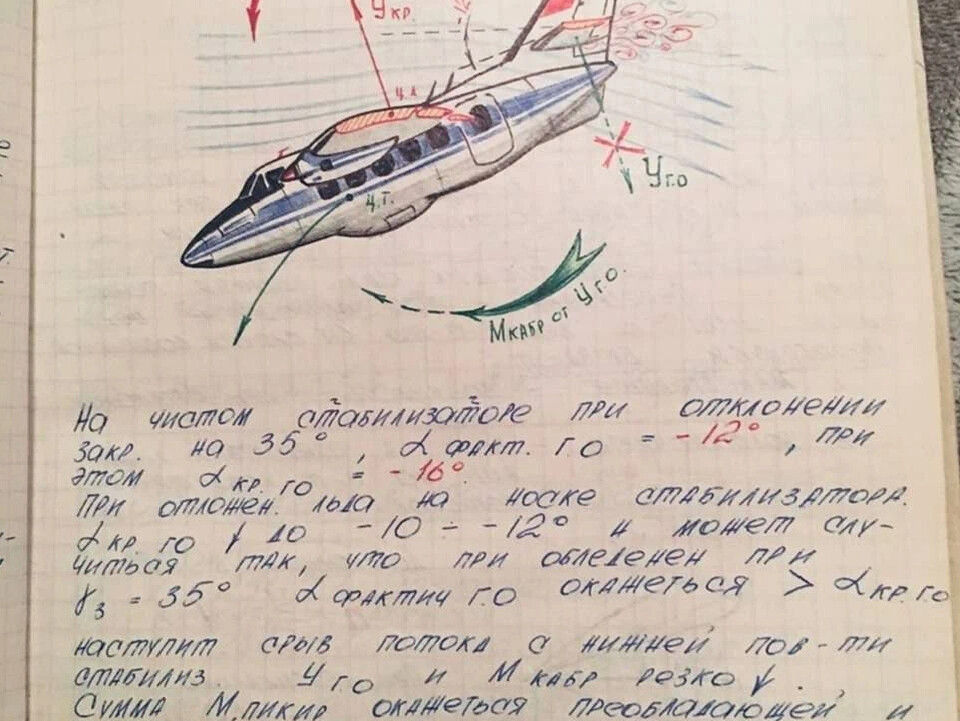 Yкр.
ц.д.
Yг.о
ц.т.
Мкабр от Yг.о.
На чистом стабилизаторе при отклонении
закр. на 35°, α факт. г.о = -12°, при
этом α кр. г.о = -16°.
При отложен. льда на носке стабилизатора.
α кр. г.о ↓ до -10 ÷ -12° и может слу-
читься так, что при обледенен при
γз = 35° α фактич г.о окажеться > α кр. г.о
наступит срыв потока с нижней пов-ти
стабилиз. Yг.о и Мкабр резко ↓.
Сумма М.пикир окажеться преобладающей и